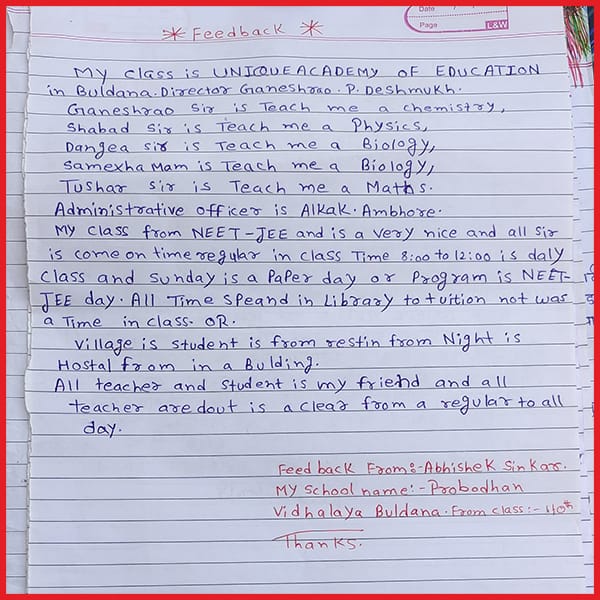 Date
Page
L&W
* Feedback *
My class is UNIQUE ACADEMY OF EDUCATION
in Buldana. Director Ganeshrao. P. Deshmukh.
Ganeshrao sir is Teach me a chemistry,
Shabad sir is Teach me a Physics,
Dangea sir is Teach me a Biology,
Samexha Mam is Teach me a Biology,
Tushar sir is Teach me a Maths.
Administrative officer is Alkak. Ambhore.
My class from NEET-JEE and is a very nice and all sir
is come on time regular in class Time 8:00 to 12:00 is daly
class and sunday is a Paper day or Program is NEET-
JEE day. All Time speand in Library to tuition not was
a Time in class. OR.
Village is student is from restin from Night is
Hostal from in a Bulding.
All teacher and student is my friend and all
teacher are dout is a clear from a regular to all
day.
Feedback From:-Abhishek Sinkar.
My school name:- Probodhan
Vidhalaya Buldana. From class:- 10th
Thanks.